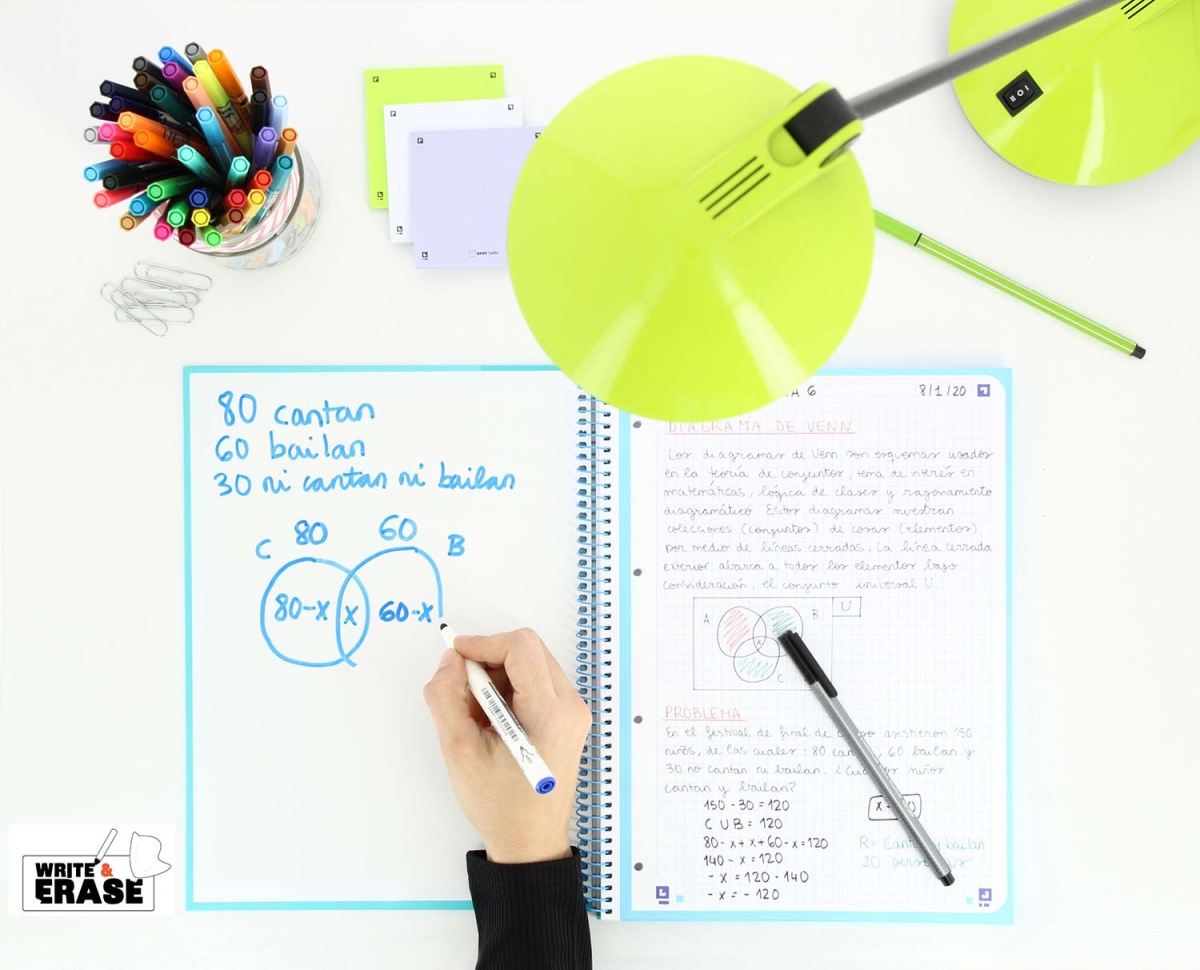 80 cantan
60 bailan
30 ni cantan ni bailan
80 60
C B
80-x x 60-x
A 6 8/1/20
DIAGRAMA DE VENN
Los diagramas de Venn son esquemas usados
en la teoría de conjuntos, tema de interés en
matemáticas, lógica de clases y razonamiento
diagramático. Estos diagramas muestran
colecciones (conjuntos) de cosas (elementos)
por medio de líneas cerradas. La línea cerrada
exterior abarca a todos los elementos bajo
consideración, el conjunto universal U.
A B U
x
C
PROBLEMA
En el festival de final de asistieron 150
niños, de los cuales: 80 60 bailan y
30 no cantan ni bailan. niños
cantan y bailan?
150 - 30 = 120
C U B = 120
80 - x + x + 60 - x = 120
140 - x = 120
- x = 120 - 140
- x = - 120
R= y bailan
20
WRITE & ERASE